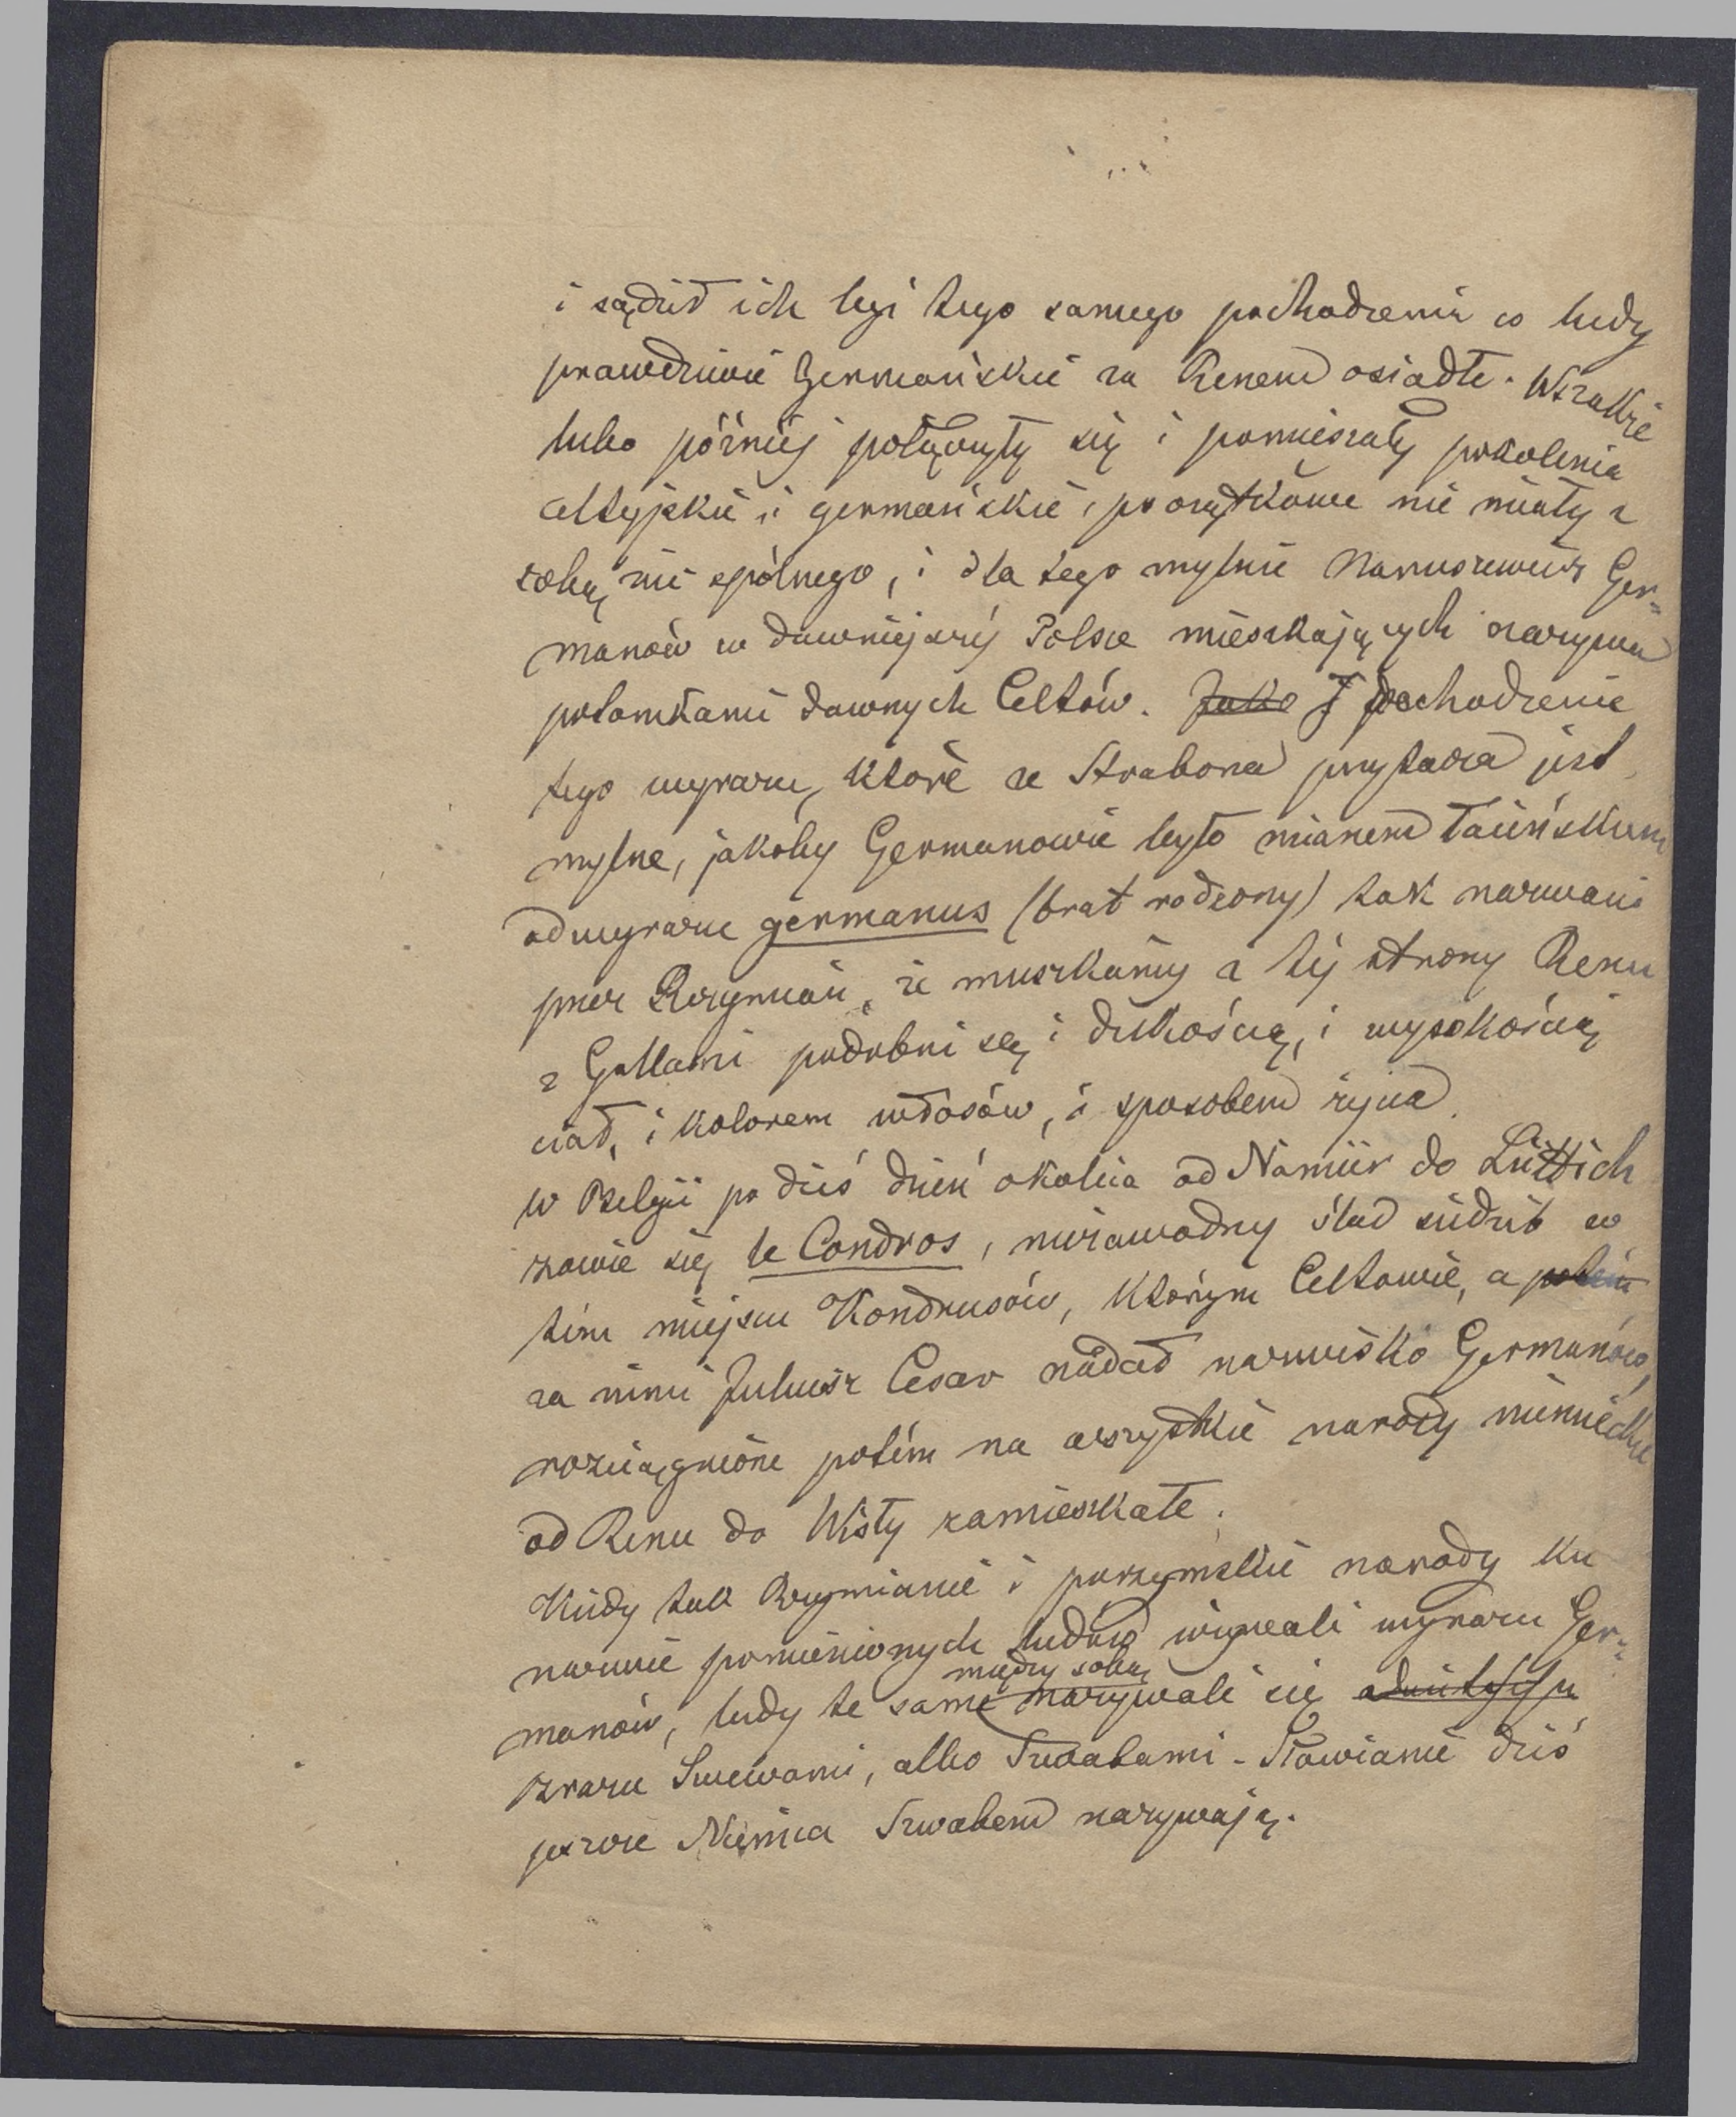 i sądził ich być tego samego pochodzenia co ludy
prawdziwie Germańskie za Renem osiadłe. Wszakże
lubo później połączyły się i pomieszały pokolenia
celtyjskie i germańskie, początkowe nie miały z
sobą nic spólnego, i dla tego mylnie Naruszewicz Ger=
manów w dawniejszéj Polsce mieszkających nazywa
potomkami dawnych Celtów. Jako I pochodzenie
tego wyrazu, które ze Strabona przytacza jest
mylne, jakoby Germanowie było mianem łacińskiem
od wyrazu germanus (brat rodzony) tak nazwani
przez Rzymian, że mieszkańcy z téj strony Renu
z Gallami podobni są i dzikością, i wysokością
ciał, i kolorem włosów, i sposobem życia.
w Belgii po dziś dzień okolica od Namür do Lüttich
zowie się le Condros, niezawodny ślad siedzib w
tém miejscu Kondrusów, którym Celtowie, a potém
za nimi Juliusz Cesar nadał nazwisko Germanów,
rozciągnione potém na wszystkie narody niemieckie
od Renu do Wisły zamieszkałe.
Kiedy tak Rzymianie i porzymskie narody ku
nazwie pomienionych ludów używali wyrazu Ger=
manów, ludy te same między sobą nazywali się
zrazu Suewami, albo Swabami - Sławianie dziś
jeszcze Niemca Szwabem nazywają.